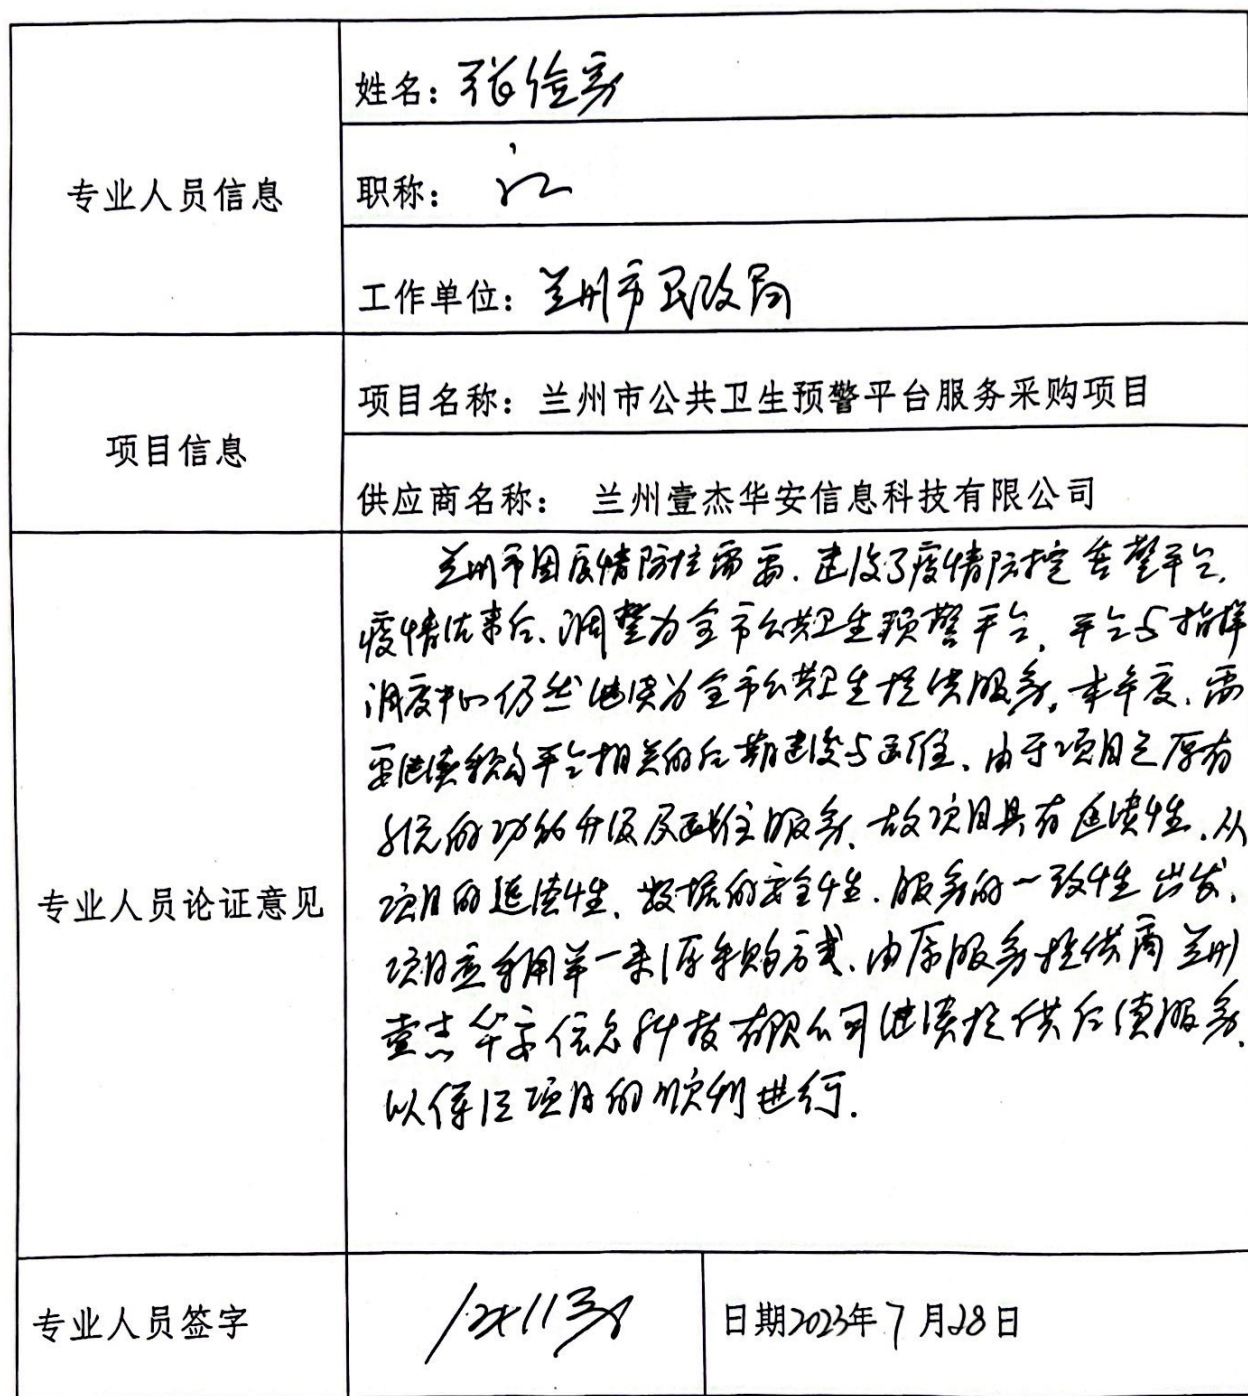 专业人员信息
姓名：张
职称：
工作单位：兰州市民政局
项目信息
项目名称：兰州市公共卫生预警平台服务采购项目
供应商名称： 兰州壹杰华安信息科技有限公司
专业人员论证意见
兰州市因疫情防控需要，建设了疫情防控 平台，
疫情结束后，调整为全市公共卫生预警平台，平台与指挥
调度中心仍然继续为全市公共卫生提供服务。本年度，需
要继续 平台相关的后期建设与运维，由于项目 原有
系统的功能升级及运维服务，故项目具有延续性，从
项目的延续性、数据的安全性、服务的一致性出发，
项目应采用单一来源采购方式，由原服务提供商兰州
壹杰华安信息科技有限公司继续提供后续服务，
以保证项目的顺利进行.
专业人员签字
日期2023年7月28日